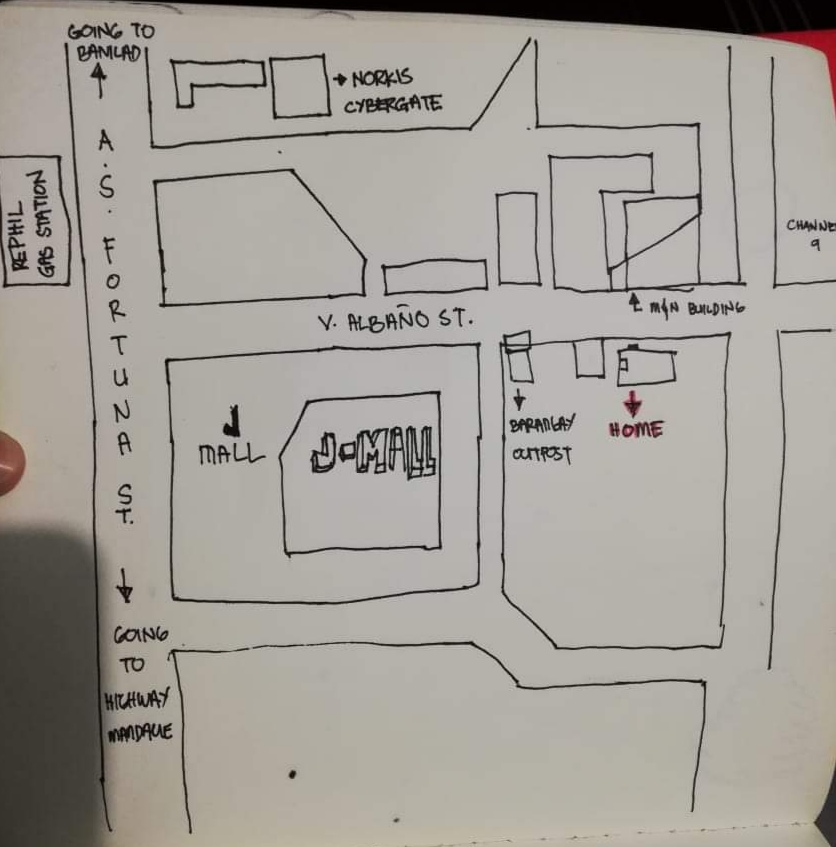 GOING TO
BANILAD
NORKIS
CYBERGATE
A.S. FORTUNA ST.
REPHIL
GAS STATION
CHANNE
9
V. ALBAÑO ST.
M&N BUILDING
J
MALL
J-MALL
BARANGAY
OUTPOST
HOME
GOING
TO
HIGHWAY
MANDAUE